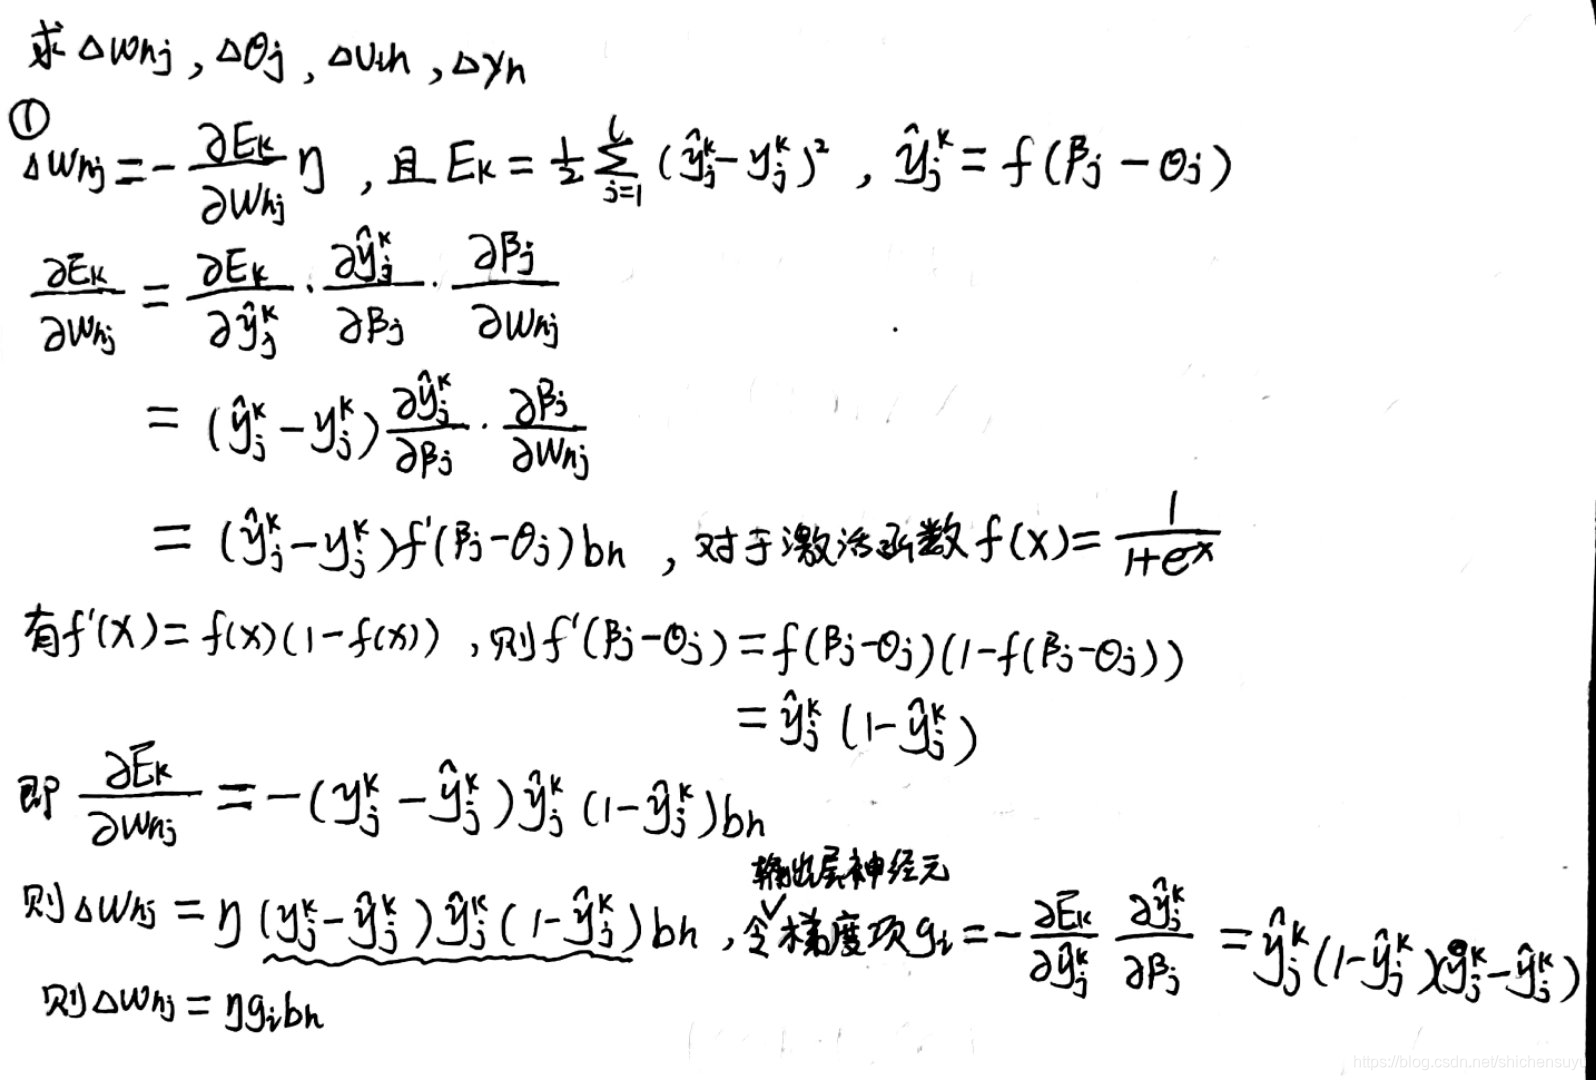 求 Δw_hj , Δθ_j , Δv_ih , Δγ_h
①
Δw_hj = - ∂E_k/∂w_hj η , 且 E_k = 1/2 Σ_{j=1}^{l} (ŷ_j^k - y_j^k)² , ŷ_j^k = f(β_j - θ_j)
∂E_k/∂w_hj = ∂E_k/∂ŷ_j^k · ∂ŷ_j^k/∂β_j · ∂β_j/∂w_hj
= (ŷ_j^k - y_j^k) ∂ŷ_j^k/∂β_j · ∂β_j/∂w_hj
= (ŷ_j^k - y_j^k) f'(β_j - θ_j) b_h , 对于激活函数 f(x) = 1/(1+e^x)
有 f'(x) = f(x)(1-f(x)) , 则 f'(β_j - θ_j) = f(β_j - θ_j)(1-f(β_j - θ_j))
= ŷ_j^k (1-ŷ_j^k)
即 ∂E_k/∂w_hj = -(y_j^k - ŷ_j^k) ŷ_j^k (1-ŷ_j^k) b_h
输出层神经元
则 Δw_hj = η (y_j^k - ŷ_j^k) ŷ_j^k (1-ŷ_j^k) b_h , 令梯度项 g_i = - ∂E_k/∂ŷ_j^k ∂ŷ_j^k/∂β_j = ŷ_j^k (1-ŷ_j^k)(y_j^k - ŷ_j^k)
则 Δw_hj = η g_i b_h
https://blog.csdn.net/shichensuyu